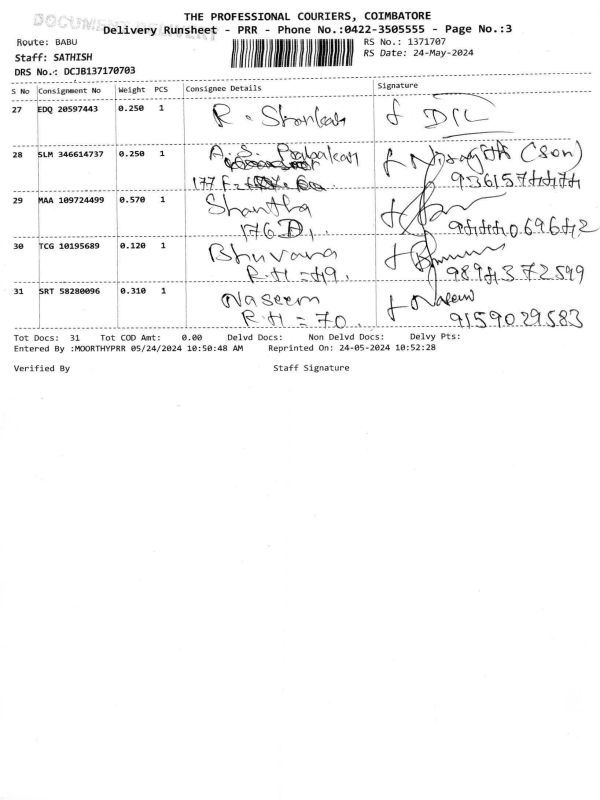 DOCUMENT DELIVERY
THE PROFESSIONAL COURIERS, COIMBATORE
Delivery Runsheet - PRR - Phone No.:0422-3505555 - Page No.:3
Route: BABU
RS No.: 1371707
Staff: SATHISH
RS Date: 24-May-2024
DRS No.: DCJB137170703
S No Consignment No Weight PCS Consignee Details Signature
27 EDQ 20597443 0.250 1 R. Shankar
28 SLM 346614737 0.250 1 A.S. Prabakar (Son)
177 F
29 MAA 109724499 0.570 1 Shantha
176 D,
30 TCG 10195689 0.120 1 Bhuvana
R.H = 49. 9894372599
31 SRT 58280096 0.310 1 Naseem Naseem
R.H = 70. 9159029583
Tot Docs: 31 Tot COD Amt: 0.00 Delvd Docs: Non Delvd Docs: Delvy Pts:
Entered By :MOORTHYPRR 05/24/2024 10:50:48 AM Reprinted On: 24-05-2024 10:52:28
Verified By Staff Signature